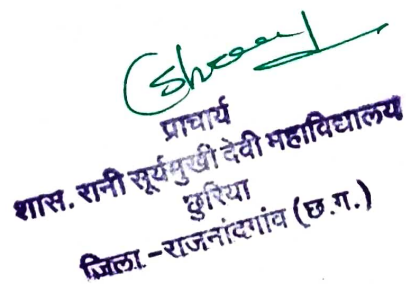 प्राचार्य
शास. रानी सूर्यमुखी देवी महाविद्यालय
छुरिया
जिला - राजनांदगांव (छ.ग.)